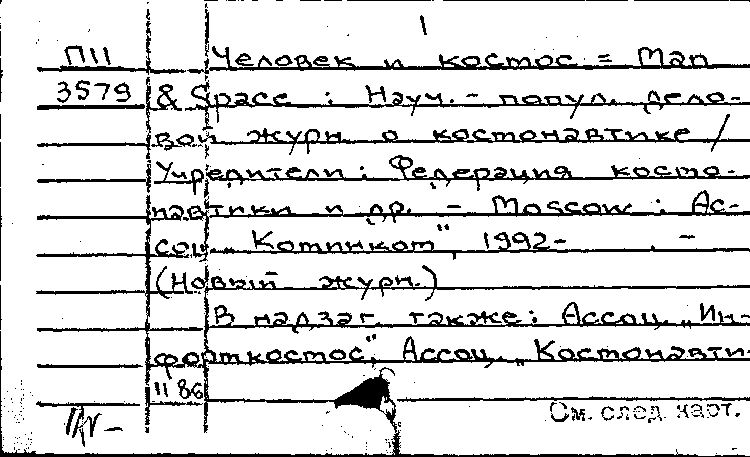 1
П11 Человек и космос = Man
3579 & Space : Науч.- попул. дело-
вой журн. о космонавтике /
Учредители: Федерация космо-
навтики и др. - Moscow : Ас-
соц. „Коминком", 1992- . -
(Новый журн.)
В надзаг. также: Ассоц. „Ин-
формкосмос", Ассоц. „Космонавти-
11 86
См. след. карт.